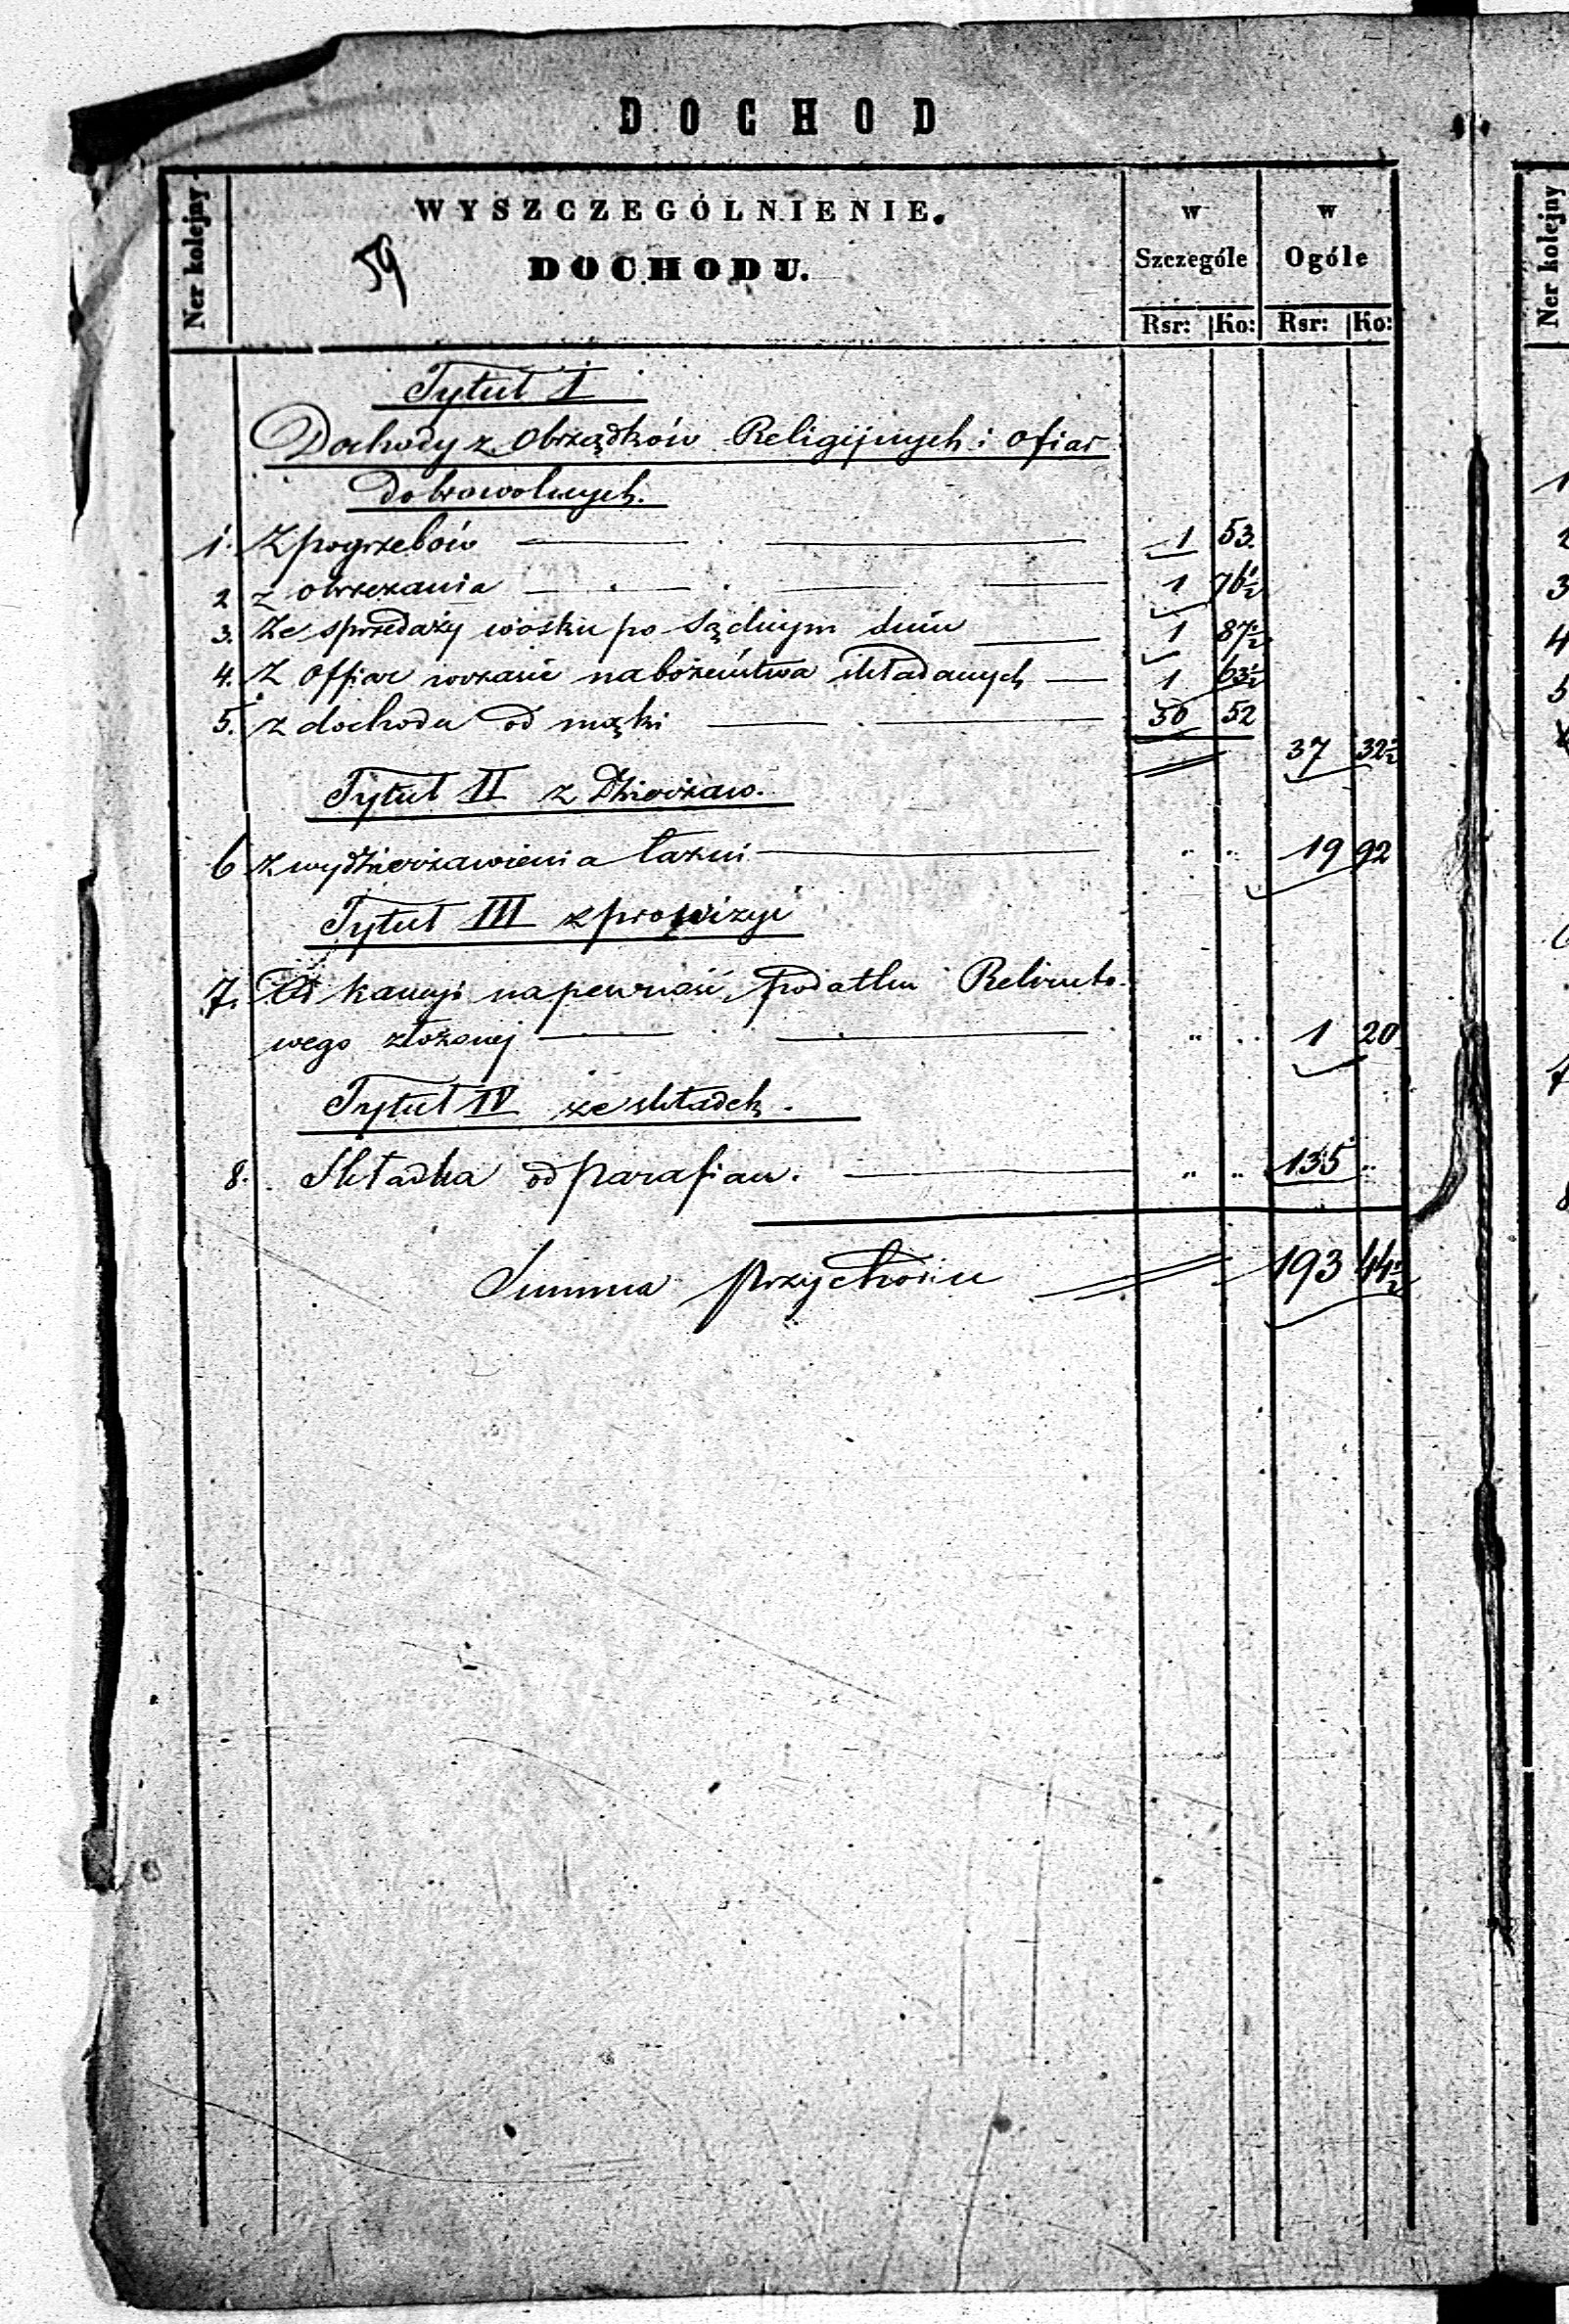 DOCHOD
Ner kolejny
WYSZCZEGÓLNIENIE.
DOCHODU.
59
w Szczególe
w Ogóle
Rsr: Ko: Rsr: Ko:
Tytuł I
Dochody z Obrządków Religijnych i ofiar
dobrowolnych.
1. Z pogrzebów 1 53.
2 z obrzezania 1 76½
3. Ze sprzedaży wosku po Sądnym dniu 1 87½
4. Z Offiar wczasie nabożeństwa składanych 1 63½
5. z dochodu od mąki 30 52
37 32½
Tytuł II z Dzierżaw.
6 z wydzierżawienia łaźni " " 19 92
Tytuł III z prowizyi
7. Od kaucyi na pewność podatku Rekruto-
wego złożonej " " 1 20
Tytuł IV ze składek.
8. Składka od parafian. " " 135 "
Summa przychodu 193 44½
Ner kolejny
1
2
3
4
5
6
7
8